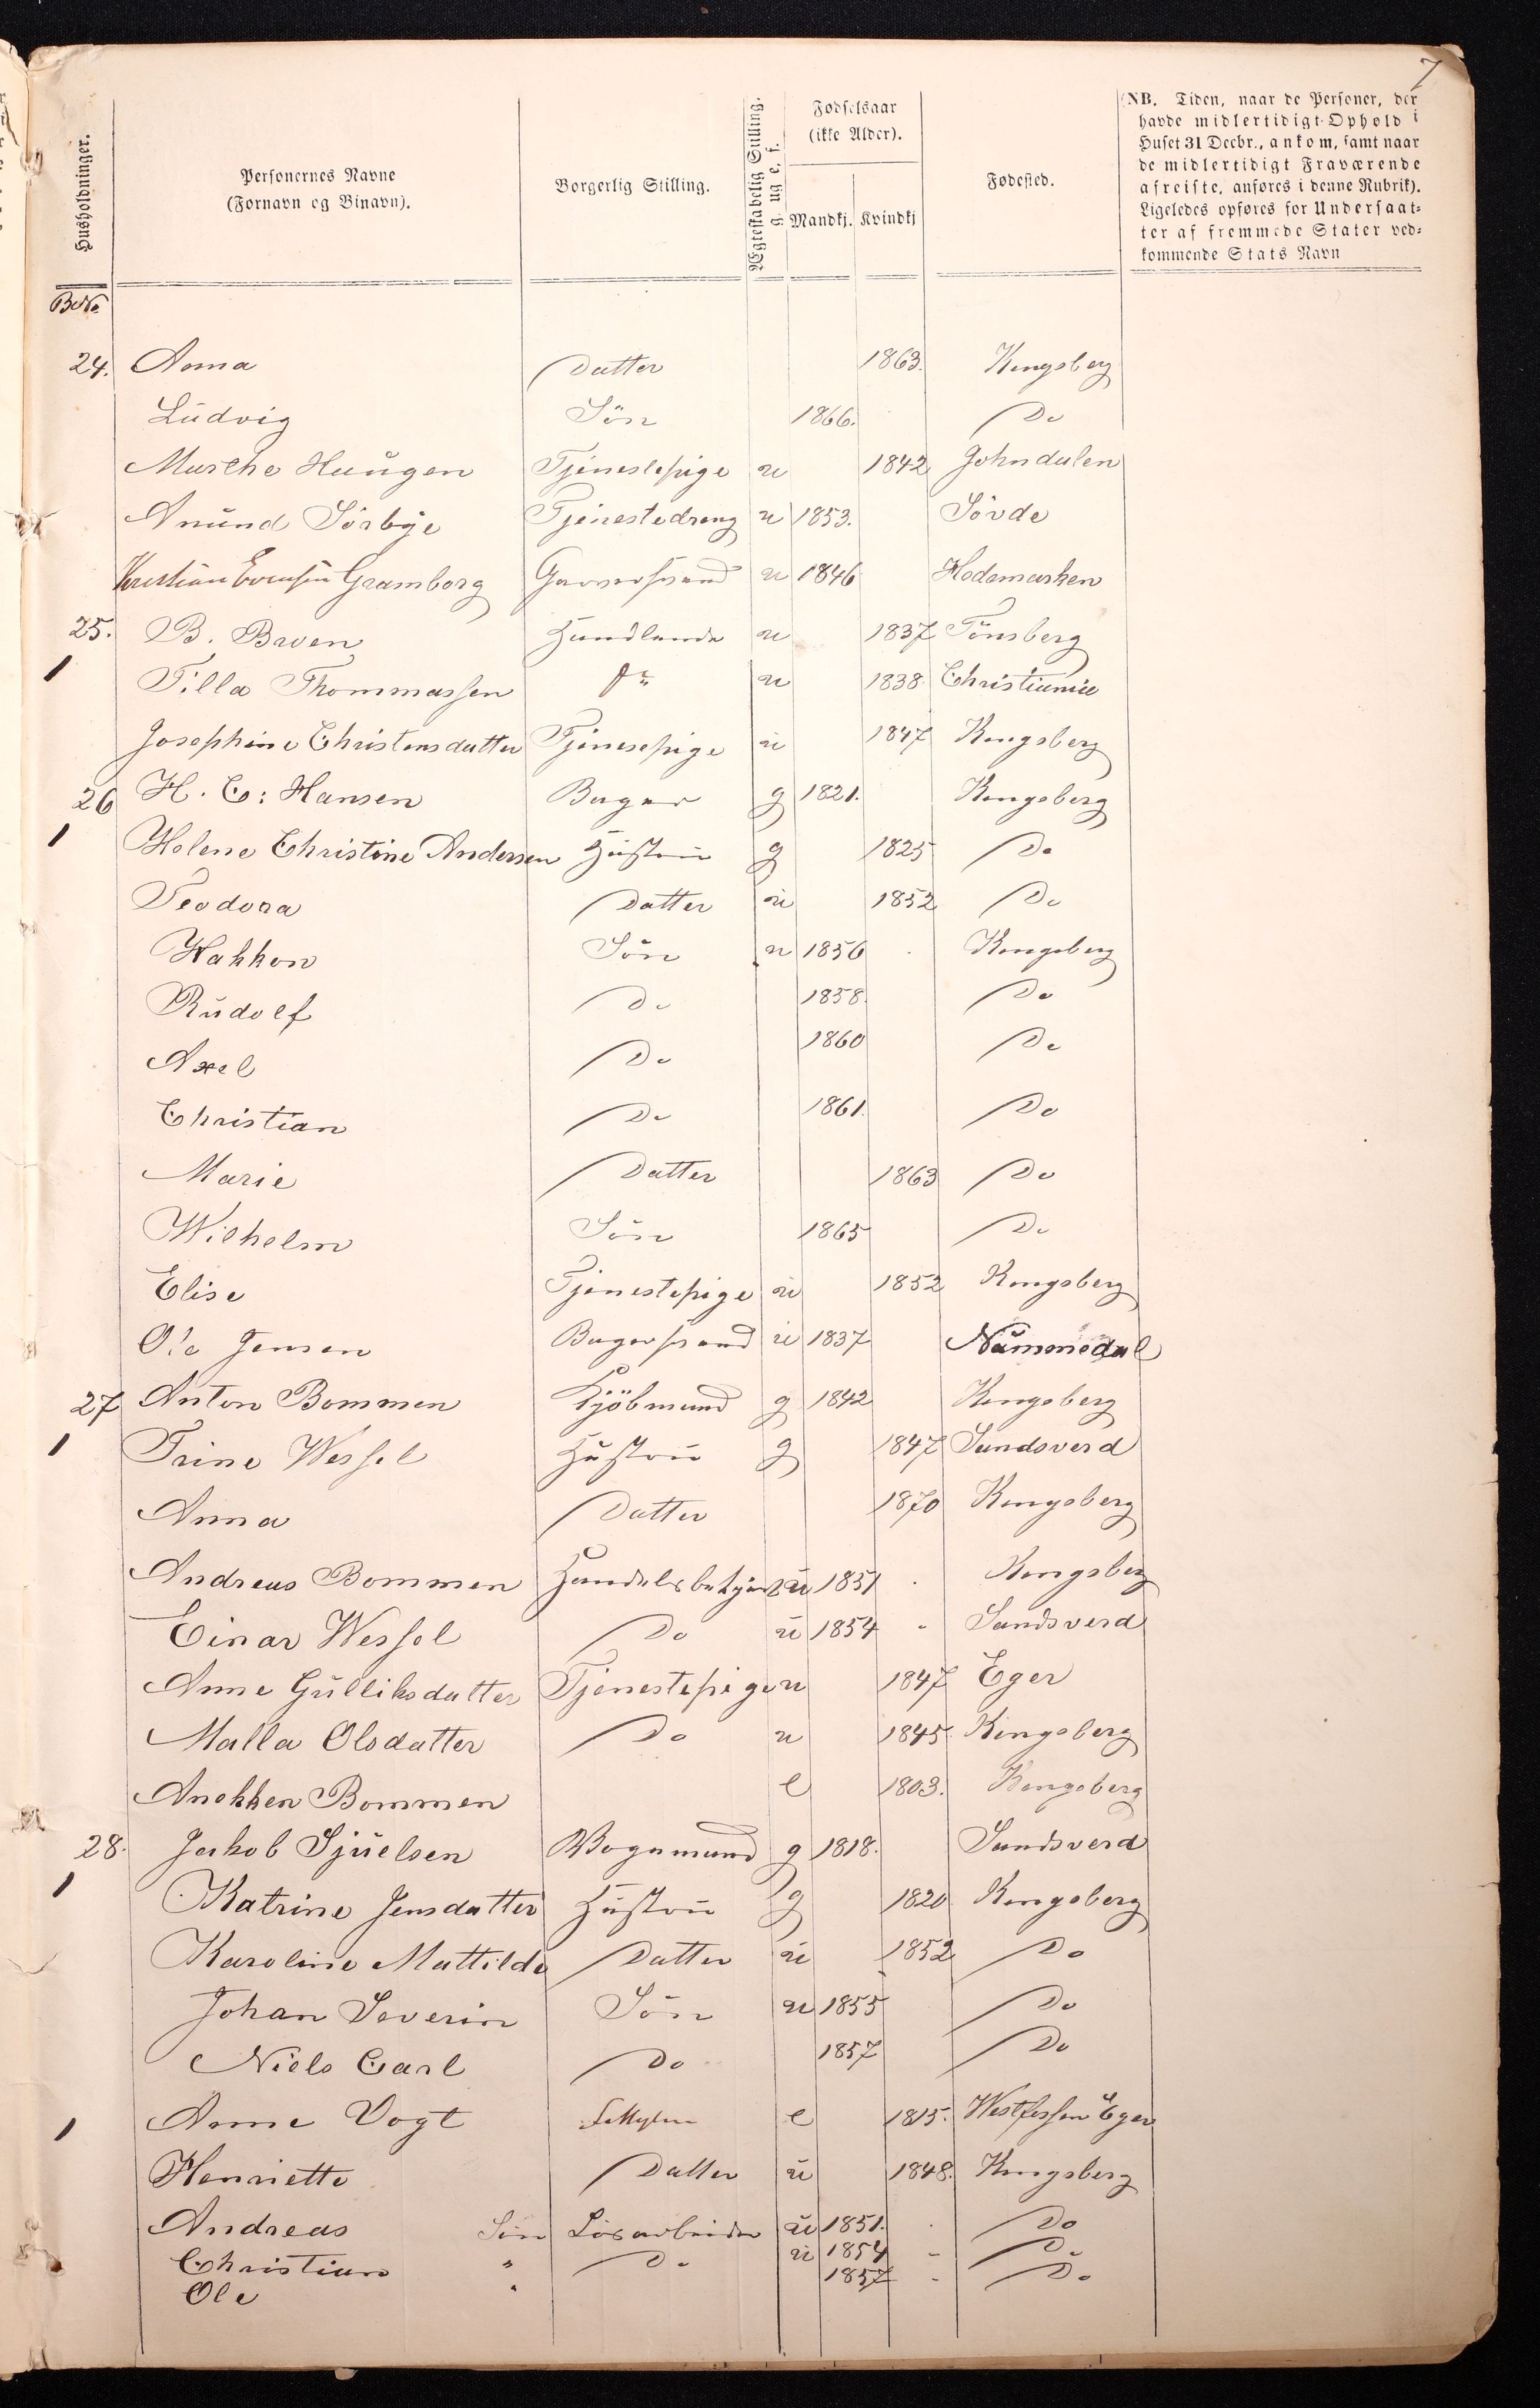 7
Husholdninger.
Personernes Navne
(Fornavn og Binavn).
Borgerlig Stilling.
Ægteskabelig Stilling.
g. ug e. f.
Fødselsaar
(ikke Alder).
Mandkj. Kvindkj
Fødested.
(NB. Tiden, naar de Personer, der
havde midlertidigt Ophold i
Huset 31 Decbr., ankom, samt naar
de midlertidigt Fraværende
afreiste, anføres i denne Rubrik).
Ligeledes opføres for Undersaat-
ter af fremmede Stater ved-
kommende Stats Navn
24. Anna Datter 1863. Kongsberg
Ludvig Sön 1866. Do
Marthe Haugen Tjenestepige u 1842 Johndalen
Anund Sörbye Tjenestedreng u 1853. Sövde
Kristian Evensen Gramborg Garversvend u 1846 Hedemarken
25. B. Bruen Handlende u 1837 Tönsberg
1 Tilla Thommassen Do u 1838 Christiania
Josephine Christensdatter Tjenesepige u 1847 Kongsberg
26 H. C: Hansen Bager g 1821. Kongsberg
1 Helene Christine Andersen Hustru g 1825 Do
Teodora Datter u 1852 Do
Hakkon Sön u 1856 Kongsberg
Rudolf Do 1858. Do
Axel Do 1860 Do
Christian Do 1861. Do
Marie Datter 1863 Do
Wilhelm Sön 1865 Do
Elise Tjenestepige u 1852 Kongsberg
Ole Jensen Bagersvend u 1837 Nummedal
27 Anton Bommen Kjöbmand g 1842 Kongsberg
1 Trine Wessel Hustru g 1847 Sandsverd
Anna Datter 1870 Kongsberg
Andreas Bommen Handelsbetjent u 1851 Kongsberg
Einar Wessel Do u 1854 Sandsverd
Anne Gulliksdatter Tjenestepige u 1847 Eger
Malla Olsdatter Do u 1845 Kongsberg
Anekken Bommen e 1803. Kongsberg
28. Jakob Sjuelsen Vognmand g 1818. Sandsverd
1 Katrine Jensdatter Hustru g 1820 Kongsberg
Karoline Mattilde Datter u 1852 Do
Johan Severin Sön u 1855 Do
Niels Carl Do 1857 Do
1 Anne Vogt e 1815. Westfossen Eger
Henriette Datter u 1848. Kongsberg
Andreas Sön Lösarbeider u 1851. Do
Christian " Do u 1854 Do
Ole " 1857 Do